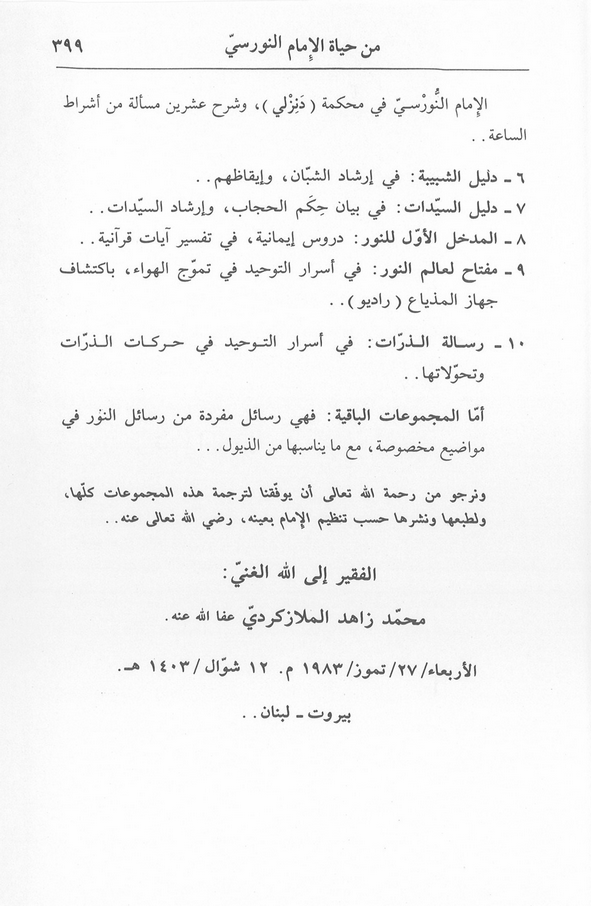 من حياة الإمام النورسيّ ٣٩٩
الإمام النُّورْسيّ في محكمة ( دَنِزْلي )، وشرح عشرين مسألة من أشراط
الساعة . .
٦ ـ دليل الشبيبة: في إرشاد الشبّان، وإيقاظهم . .
٧ ـ دليل السيّدات: في بيان حِكَم الحجاب، وإرشاد السيّدات . .
٨ ـ المدخل الأوّل للنور: دروس إيمانية، في تفسير آيات قرآنية . .
٩ ـ مفتاح لعالم النور: في أسرار التوحيد في تموّج الهواء، باكتشاف
جهاز المذياع ( راديو ) . .
١٠ ـ رسالة الذرّات: في أسرار التوحيد في حركات الذرّات
وتحوّلاتها . .
أمّا المجموعات الباقية: فهي رسائل مفردة من رسائل النور في
مواضيع مخصوصة، مع ما يناسبها من الذيول . . .
ونرجو من رحمة الله تعالى أن يوفّقنا لترجمة هذه المجموعات كلّها،
ولطبعها ونشرها حسب تنظيم الإمام بعينه، رضي الله تعالى عنه . .
الفقير إلى الله الغنيّ:
محمّد زاهد الملازكرديّ عفا الله عنه.
الأربعاء/٢٧/تموز/١٩٨٣ م. ١٢ شوّال/١٤٠٣ هـ.
بيروت ـ لبنان . .